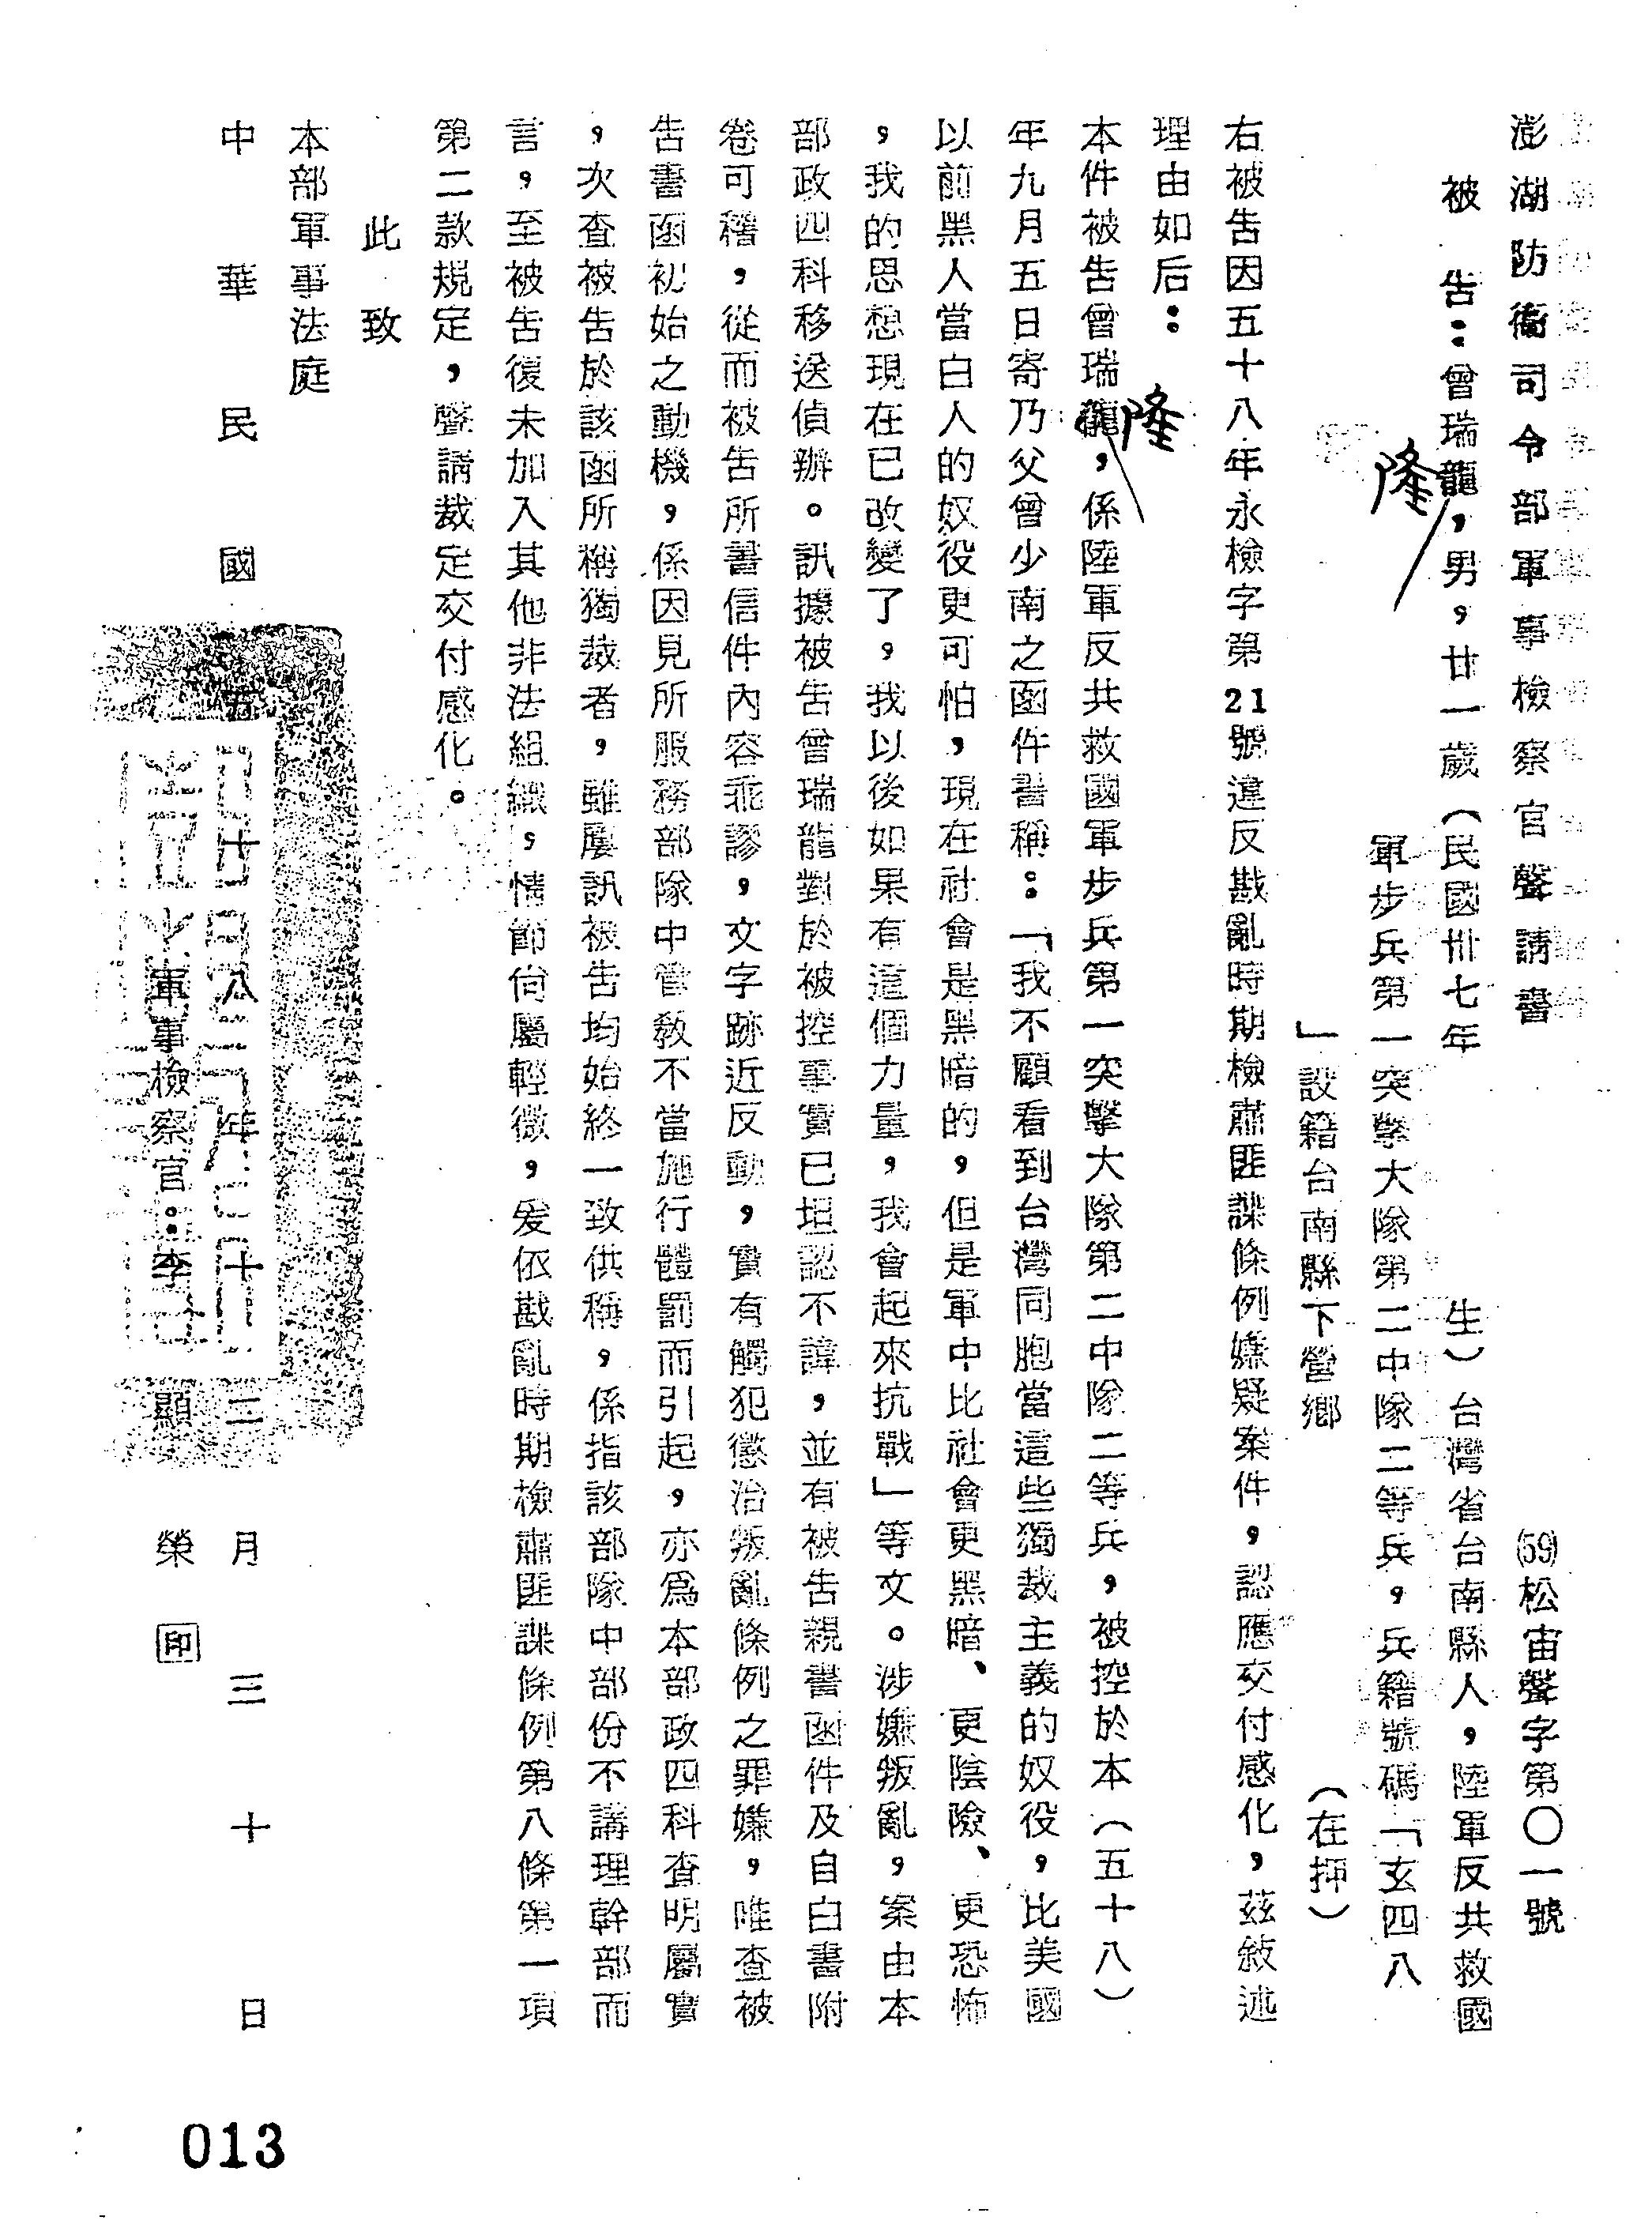 澎湖防衞司令部軍事檢察官聲請書
(59)松宙聲字第〇一號
被告：曾瑞龍，男，廿一歲（民國卅七年　生）台灣省台南縣人，陸軍反共救國
隆
軍步兵第一突擊大隊第二中隊二等兵，兵籍號碼「玄四八
」設籍台南縣下營鄉　（在押）
右被告因五十八年永檢字第21號違反戡亂時期檢肅匪諜條例嫌疑案件，認應交付感化，茲敍述
理由如后：
隆
本件被告曾瑞龍，係陸軍反共救國軍步兵第一突擊大隊第二中隊二等兵，被控於本（五十八）
年九月五日寄乃父曾少南之函件書稱：「我不願看到台灣同胞當這些獨裁主義的奴役，比美國
以前黑人當白人的奴役更可怕，現在社會是黑暗的，但是軍中比社會更黑暗、更陰險、更恐怖
，我的思想現在已改變了，我以後如果有這個力量，我會起來抗戰」等文。涉嫌叛亂，案由本
部政四科移送偵辦。訊據被告曾瑞龍對於被控事實已坦認不諱，並有被告親書函件及自白書附
卷可稽，從而被告所書信件內容乖謬，文字跡近反動，實有觸犯懲治叛亂條例之罪嫌，唯查被
告書函初始之動機，係因見所服務部隊中管敎不當施行體罰而引起，亦爲本部政四科查明屬實
，次查被告於該函所稱獨裁者，雖屢訊被告均始終一致供稱，係指該部隊中部份不講理幹部而
言，至被告復未加入其他非法組織，情節尙屬輕微，爰依戡亂時期檢肅匪諜條例第八條第一項
第二款規定，聲請裁定交付感化。
此致
本部軍事法庭
中華民國五十八年十二月三十日
軍事檢察官：李顯榮　印
013